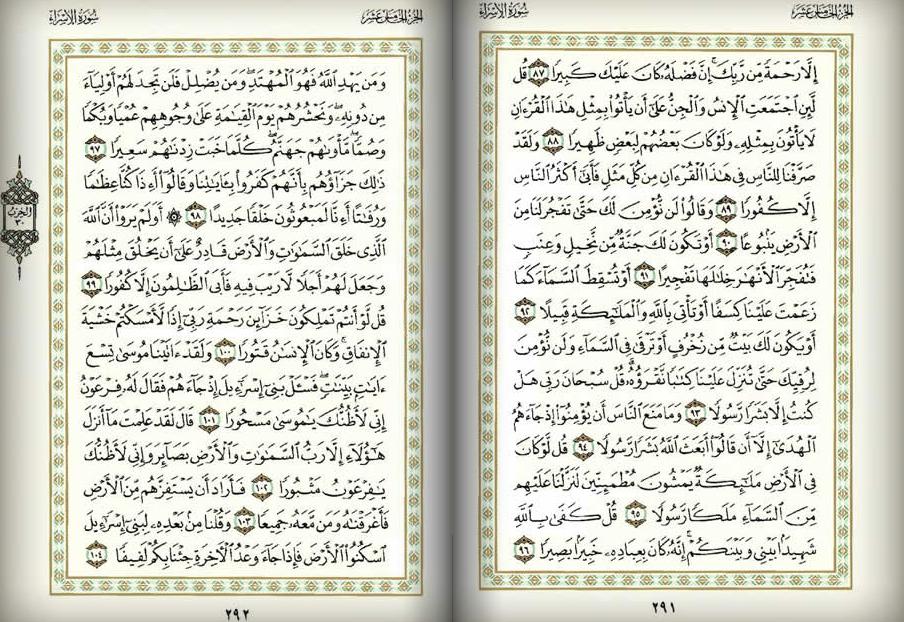 الجزء الخامس عشر
سورة الإسراء
إِلَّا رَحْمَةً مِّن رَّبِّكَ ۚ إِنَّ فَضْلَهُۥ كَانَ عَلَيْكَ كَبِيرًا ٨٧ قُل
لَّئِنِ ٱجْتَمَعَتِ ٱلْإِنسُ وَٱلْجِنُّ عَلَىٰٓ أَن يَأْتُوا۟ بِمِثْلِ هَٰذَا ٱلْقُرْءَانِ
لَا يَأْتُونَ بِمِثْلِهِۦ وَلَوْ كَانَ بَعْضُهُمْ لِبَعْضٍ ظَهِيرًا ٨٨ وَلَقَدْ
صَرَّفْنَا لِلنَّاسِ فِى هَٰذَا ٱلْقُرْءَانِ مِن كُلِّ مَثَلٍ فَأَبَىٰٓ أَكْثَرُ ٱلنَّاسِ
إِلَّا كُفُورًا ٨٩ وَقَالُوا۟ لَن نُّؤْمِنَ لَكَ حَتَّىٰ تَفْجُرَ لَنَا مِنَ
ٱلْأَرْضِ يَنۢبُوعًا ٩٠ أَوْ تَكُونَ لَكَ جَنَّةٌ مِّن نَّخِيلٍ وَعِنَبٍ
فَتُفَجِّرَ ٱلْأَنْهَٰرَ خِلَٰلَهَا تَفْجِيرًا ٩١ أَوْ تُسْقِطَ ٱلسَّمَآءَ كَمَا
زَعَمْتَ عَلَيْنَا كِسَفًا أَوْ تَأْتِىَ بِٱللَّهِ وَٱلْمَلَٰٓئِكَةِ قَبِيلًا ٩٢
أَوْ يَكُونَ لَكَ بَيْتٌ مِّن زُخْرُفٍ أَوْ تَرْقَىٰ فِى ٱلسَّمَآءِ وَلَن نُّؤْمِنَ
لِرُقِيِّكَ حَتَّىٰ تُنَزِّلَ عَلَيْنَا كِتَٰبًا نَّقْرَؤُهُۥ ۗ قُلْ سُبْحَانَ رَبِّى هَلْ
كُنتُ إِلَّا بَشَرًا رَّسُولًا ٩٣ وَمَا مَنَعَ ٱلنَّاسَ أَن يُؤْمِنُوٓا۟ إِذْ جَآءَهُمُ
ٱلْهُدَىٰٓ إِلَّآ أَن قَالُوٓا۟ أَبَعَثَ ٱللَّهُ بَشَرًا رَّسُولًا ٩٤ قُل لَّوْ كَانَ
فِى ٱلْأَرْضِ مَلَٰٓئِكَةٌ يَمْشُونَ مُطْمَئِنِّينَ لَنَزَّلْنَا عَلَيْهِم
مِّنَ ٱلسَّمَآءِ مَلَكًا رَّسُولًا ٩٥ قُلْ كَفَىٰ بِٱللَّهِ
شَهِيدًۢا بَيْنِى وَبَيْنَكُمْ ۚ إِنَّهُۥ كَانَ بِعِبَادِهِۦ خَبِيرًۢا بَصِيرًا ٩٦
٢٩١
الجزء الخامس عشر
سورة الإسراء
وَمَن يَهْدِ ٱللَّهُ فَهُوَ ٱلْمُهْتَدِ ۖ وَمَن يُضْلِلْ فَلَن تَجِدَ لَهُمْ أَوْلِيَآءَ
مِن دُونِهِۦ ۖ وَنَحْشُرُهُمْ يَوْمَ ٱلْقِيَٰمَةِ عَلَىٰ وُجُوهِهِمْ عُمْيًا وَبُكْمًا
وَصُمًّا ۖ مَّأْوَىٰهُمْ جَهَنَّمُ ۖ كُلَّمَا خَبَتْ زِدْنَٰهُمْ سَعِيرًا ٩٧
ذَٰلِكَ جَزَآؤُهُم بِأَنَّهُمْ كَفَرُوا۟ بِـَٔايَٰتِنَا وَقَالُوٓا۟ أَءِذَا كُنَّا عِظَٰمًا
وَرُفَٰتًا أَءِنَّا لَمَبْعُوثُونَ خَلْقًا جَدِيدًا ٩٨ ۞ أَوَلَمْ يَرَوْا۟ أَنَّ ٱللَّهَ
الحزب ٣٠
ٱلَّذِى خَلَقَ ٱلسَّمَٰوَٰتِ وَٱلْأَرْضَ قَادِرٌ عَلَىٰٓ أَن يَخْلُقَ مِثْلَهُمْ
وَجَعَلَ لَهُمْ أَجَلًا لَّا رَيْبَ فِيهِ فَأَبَى ٱلظَّٰلِمُونَ إِلَّا كُفُورًا ٩٩
قُل لَّوْ أَنتُمْ تَمْلِكُونَ خَزَآئِنَ رَحْمَةِ رَبِّىٓ إِذًا لَّأَمْسَكْتُمْ خَشْيَةَ
ٱلْإِنفَاقِ ۚ وَكَانَ ٱلْإِنسَٰنُ قَتُورًا ١٠٠ وَلَقَدْ ءَاتَيْنَا مُوسَىٰ تِسْعَ
ءَايَٰتٍۭ بَيِّنَٰتٍ ۖ فَسْـَٔلْ بَنِىٓ إِسْرَٰٓءِيلَ إِذْ جَآءَهُمْ فَقَالَ لَهُۥ فِرْعَوْنُ
إِنِّى لَأَظُنُّكَ يَٰمُوسَىٰ مَسْحُورًا ١٠١ قَالَ لَقَدْ عَلِمْتَ مَآ أَنزَلَ
هَٰٓؤُلَآءِ إِلَّا رَبُّ ٱلسَّمَٰوَٰتِ وَٱلْأَرْضِ بَصَآئِرَ وَإِنِّى لَأَظُنُّكَ
يَٰفِرْعَوْنُ مَثْبُورًا ١٠٢ فَأَرَادَ أَن يَسْتَفِزَّهُم مِّنَ ٱلْأَرْضِ
فَأَغْرَقْنَٰهُ وَمَن مَّعَهُۥ جَمِيعًا ١٠٣ وَقُلْنَا مِنۢ بَعْدِهِۦ لِبَنِىٓ إِسْرَٰٓءِيلَ
ٱسْكُنُوا۟ ٱلْأَرْضَ فَإِذَا جَآءَ وَعْدُ ٱلْءَاخِرَةِ جِئْنَا بِكُمْ لَفِيفًا ١٠٤
٢٩٢